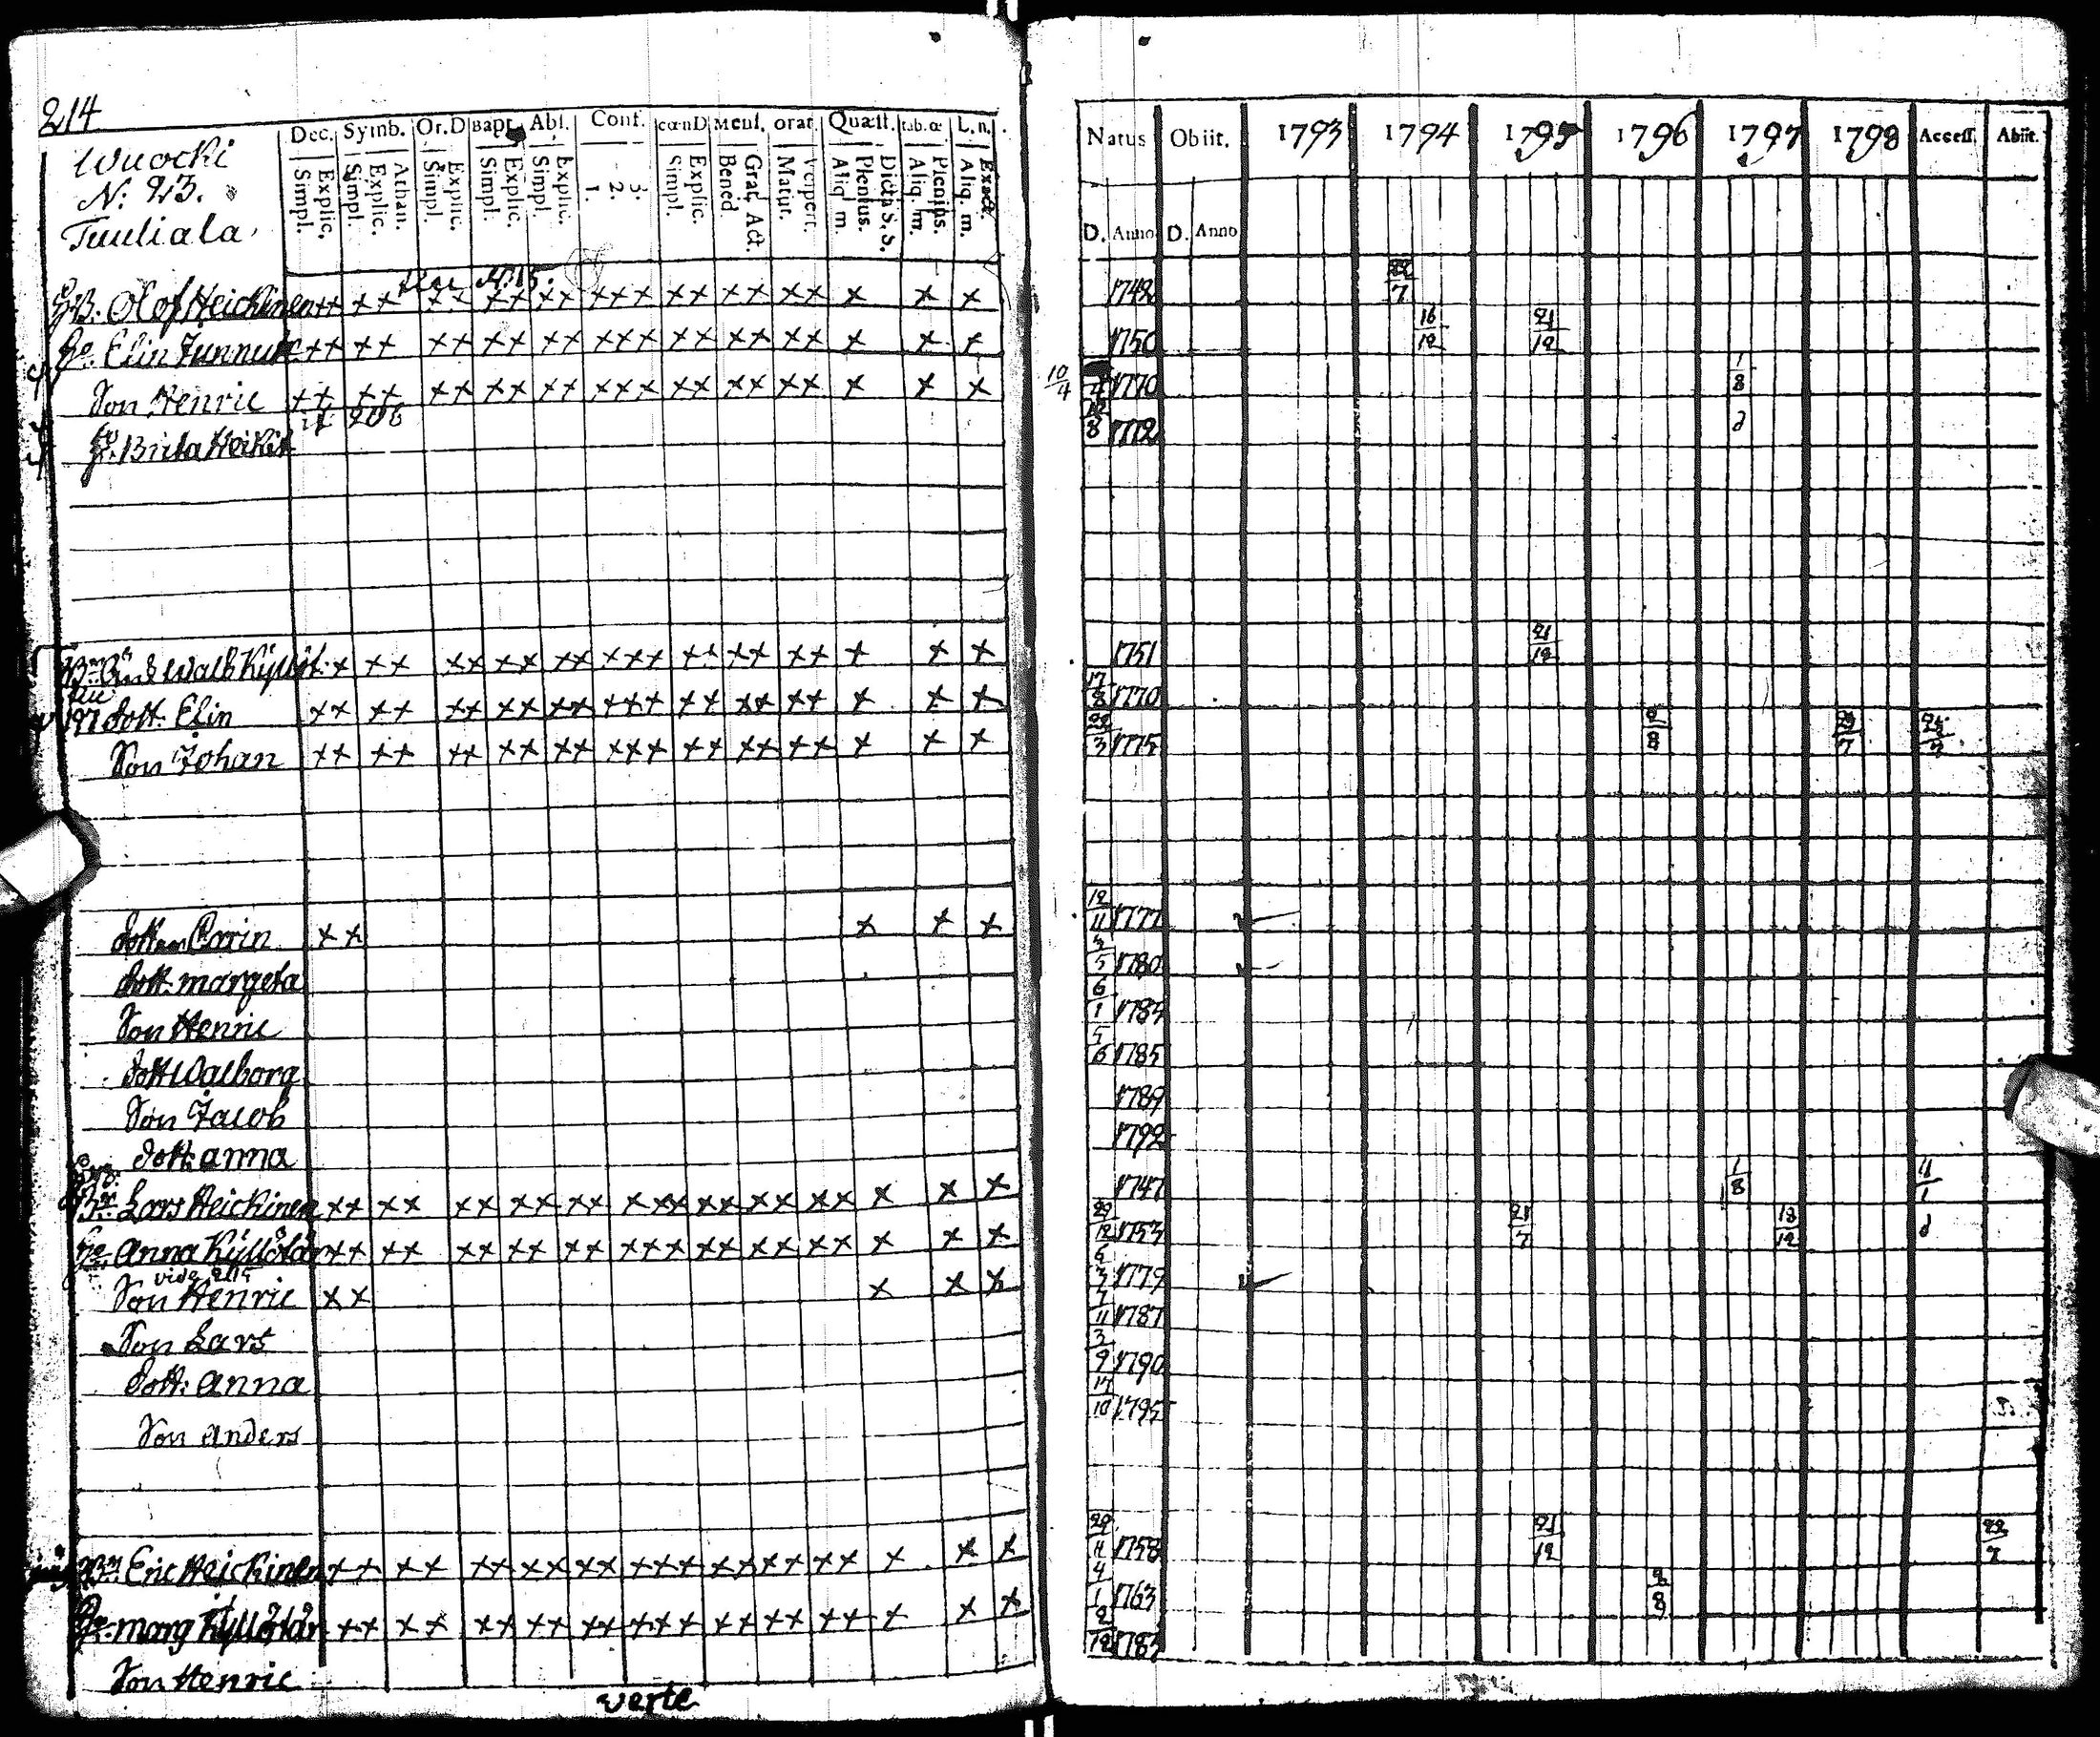 214
Wuocki
N: 23.
Tuuliala
Dec. Symb. Or.D Bapt. Abs. Conf. cœnD Mens. orat. Quæst. tab.œ L.n.
Simpl. Explic. Simpl. Explic. Athan. Simpl. Explic. Simpl. Explic. Simpl. Explic. 1. 2. 3. Simpl. Explic. Bened. Grat. Act. Matut. Vespert. Aliq. m. Plenius. Dicta S. S. Aliq. m. Plenius. Aliq. m. Exact.
Natus Obiit. 1793 1794 1795 1796 1797 1798 Access. Abiit.
D. Anno D. Anno
Olof Heickinen ×× ×× ×× ×× ×× ××× ×× ×× ×× × × × 1742 22/7
Elin Junnut: ×× ×× ×× ×× ×× ××× ×× ×× ×× × × × 1750 16/12 21/12
Son Henric ×× ×× ×× ×× ×× ××× ×× ×× ×× × × × 10/4 1770 1/8
Brita Heikit 8 1772
Walb Kyllöt. × ×× ×× ×× ×× ××× ×× ×× ×× × × × 1751 21/12
197 dott. Elin ×× ×× ×× ×× ×× ××× ×× ×× ×× × × × 17/8 1770
Son Johan ×× ×× ×× ×× ×× ××× ×× ×× ×× × × × 22/3 1775
dott. Carin ×× × × × 12/11 1777
dott. margeta 5 1780
Son Henric 6/1 1784
dott Walborg 5/6 1785
Son Jacob 1789
dott: anna 1792
Lars Heickinen ×× ×× ×× ×× ×× ××× ×× ×× ×× × × × 1747 1/8 11/1
Anna Kyllötär ×× ×× ×× ×× ×× ××× ×× ×× ×× × × × 29/12 1753 21/7 18/12
vide 215
Son Henric ×× × × × 6/3 1779
Son Lars 7/11 1787
dott: anna 3/9 1790
Son Anders 17/10 1795
Eric Heickinen ×× ×× ×× ×× ×× ××× ×× ×× ×× × × × 29/11 1758 21/12 22/7
marg Kyllötär ×× ×× ×× ×× ×× ××× ×× ×× ×× × × × 4/1 1763
Son Henric 2/12 1783
verte